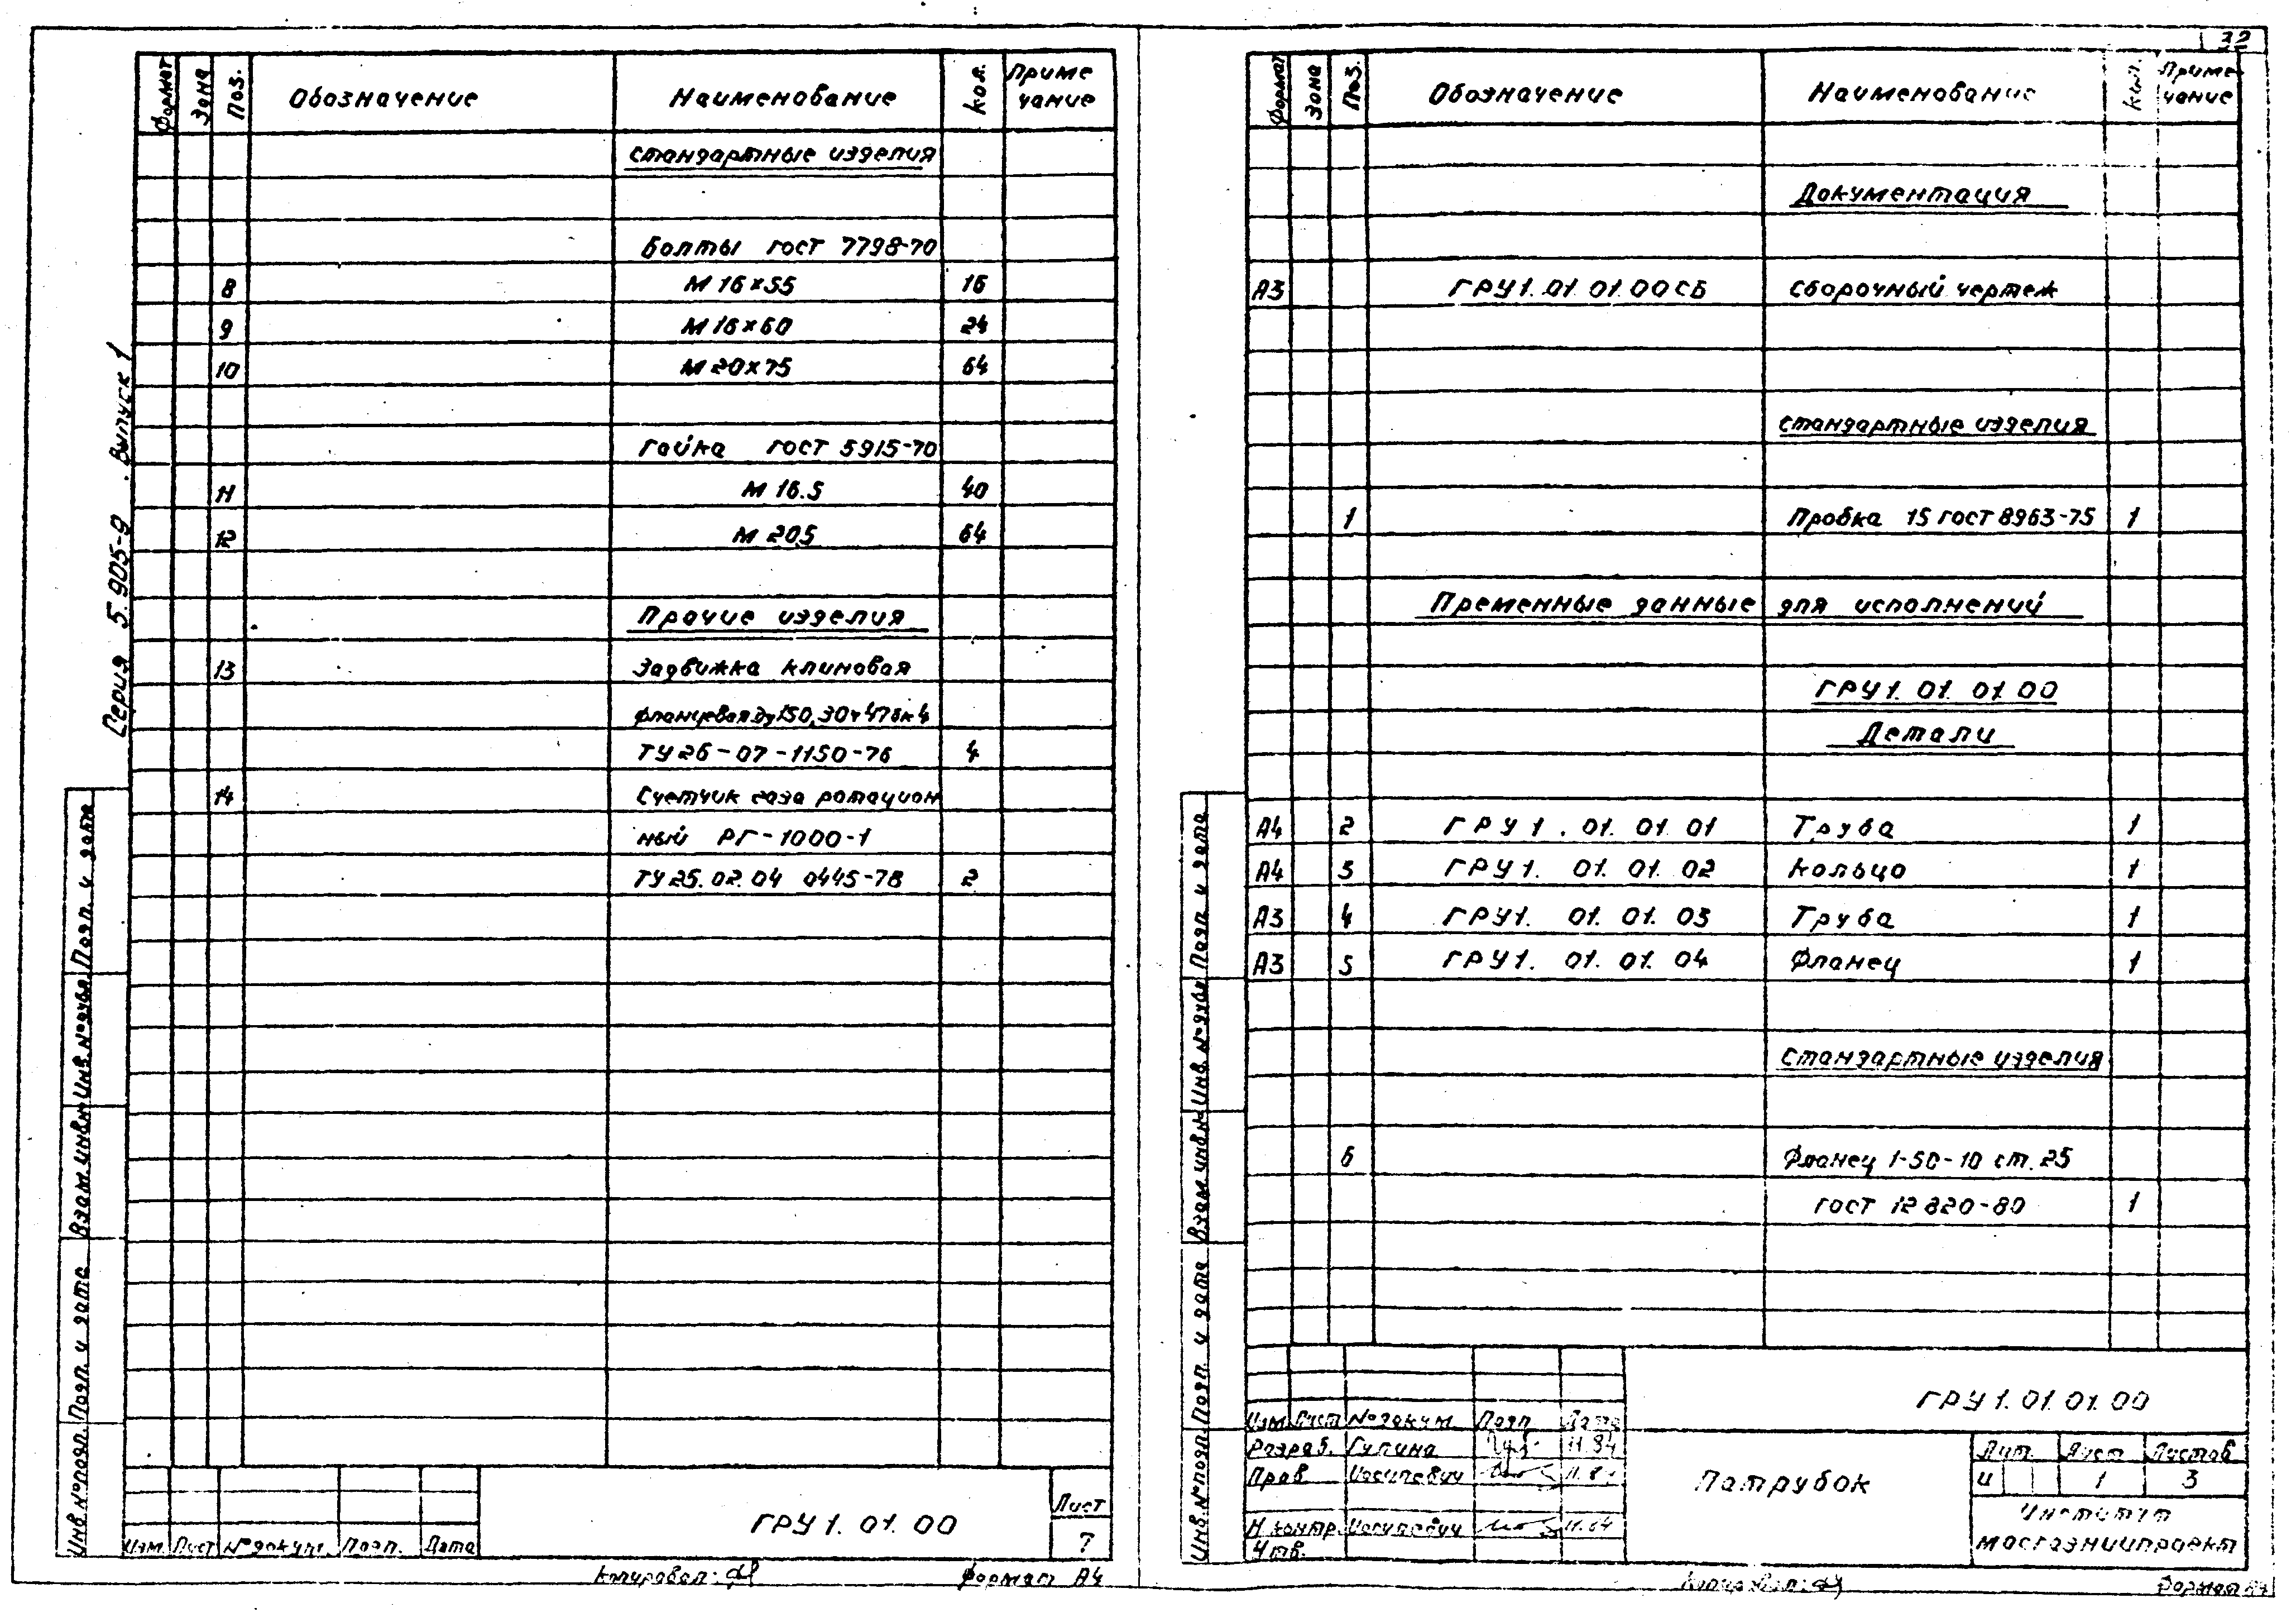 32
Серия 5.905-9 Выпуск 1
Формат Зона Поз. Обозначение Наименование Кол. Приме
чание
Стандартные изделия
Болты ГОСТ 7798-70
8 М16×55 16
9 М16×60 24
10 М20×75 64
Гайка ГОСТ 5915-70
11 М16.5 40
12 М20.5 64
Прочие изделия
13 Задвижка клиновая
фланцевая Ду150, 30ч47бк4
ТУ26-07-1150-76 4
14 Счетчик газа ротацион
ный РГ-1000-1
ТУ25.02.04 0445-78 2
Инв.№подл. Подп. и дата Взам.инв.№ Инв.№дубл. Подп. и дата
Изм. Лист №докум. Подп. Дата
ГРУ1.01.00
Лист
7
Копировал:
Формат А4
Формат Зона Поз. Обозначение Наименование Кол. Приме-
чание
Документация
А3 ГРУ1.01.01.00СБ Сборочный чертеж
Стандартные изделия
1 Пробка 15 ГОСТ 8963-75 1
Пременные данные для исполнений
ГРУ1.01.01.00
Детали
А4 2 ГРУ1.01.01.01 Труба 1
А4 3 ГРУ1.01.01.02 Кольцо 1
А3 4 ГРУ1.01.01.03 Труба 1
А3 5 ГРУ1.01.01.04 Фланец 1
Стандартные изделия
6 Фланец 1-50-10 ст.25
ГОСТ 12820-80 1
Инв.№подл. Подп. и дата Взам.инв.№ Инв.№дубл. Подп. и дата
ГРУ1.01.01.00
Изм. Лист №докум. Подп. Дата
Разраб. Гулина 11.84
Пров. Иосипевич
Н.контр. Иосипевич 11.84
Утв.
Патрубок
Лит. Лист Листов
И 1 3
Институт
мосгазниипроект
Копировал:
Формат А4